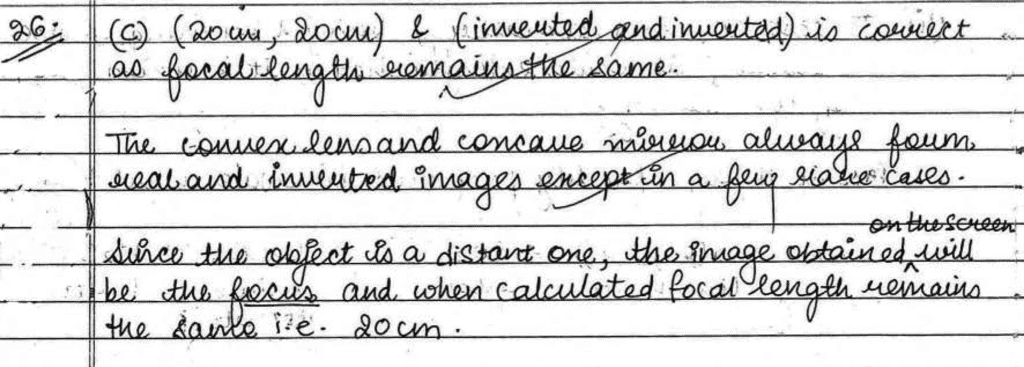 26:
(C) (20cm, 20cm) & (inverted and inverted) is correct
as focal length remains the same.
The convex lens and concave mirror always form
real and inverted images except in a few rare cases.
on the screen
Since the object is a distant one, the image obtained ^ will
be the focus and when calculated focal length remains
the same i.e. 20cm.